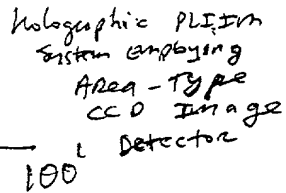 Holographic PLIIM
System employing
Area-Type
CCD Image
Detector
100'